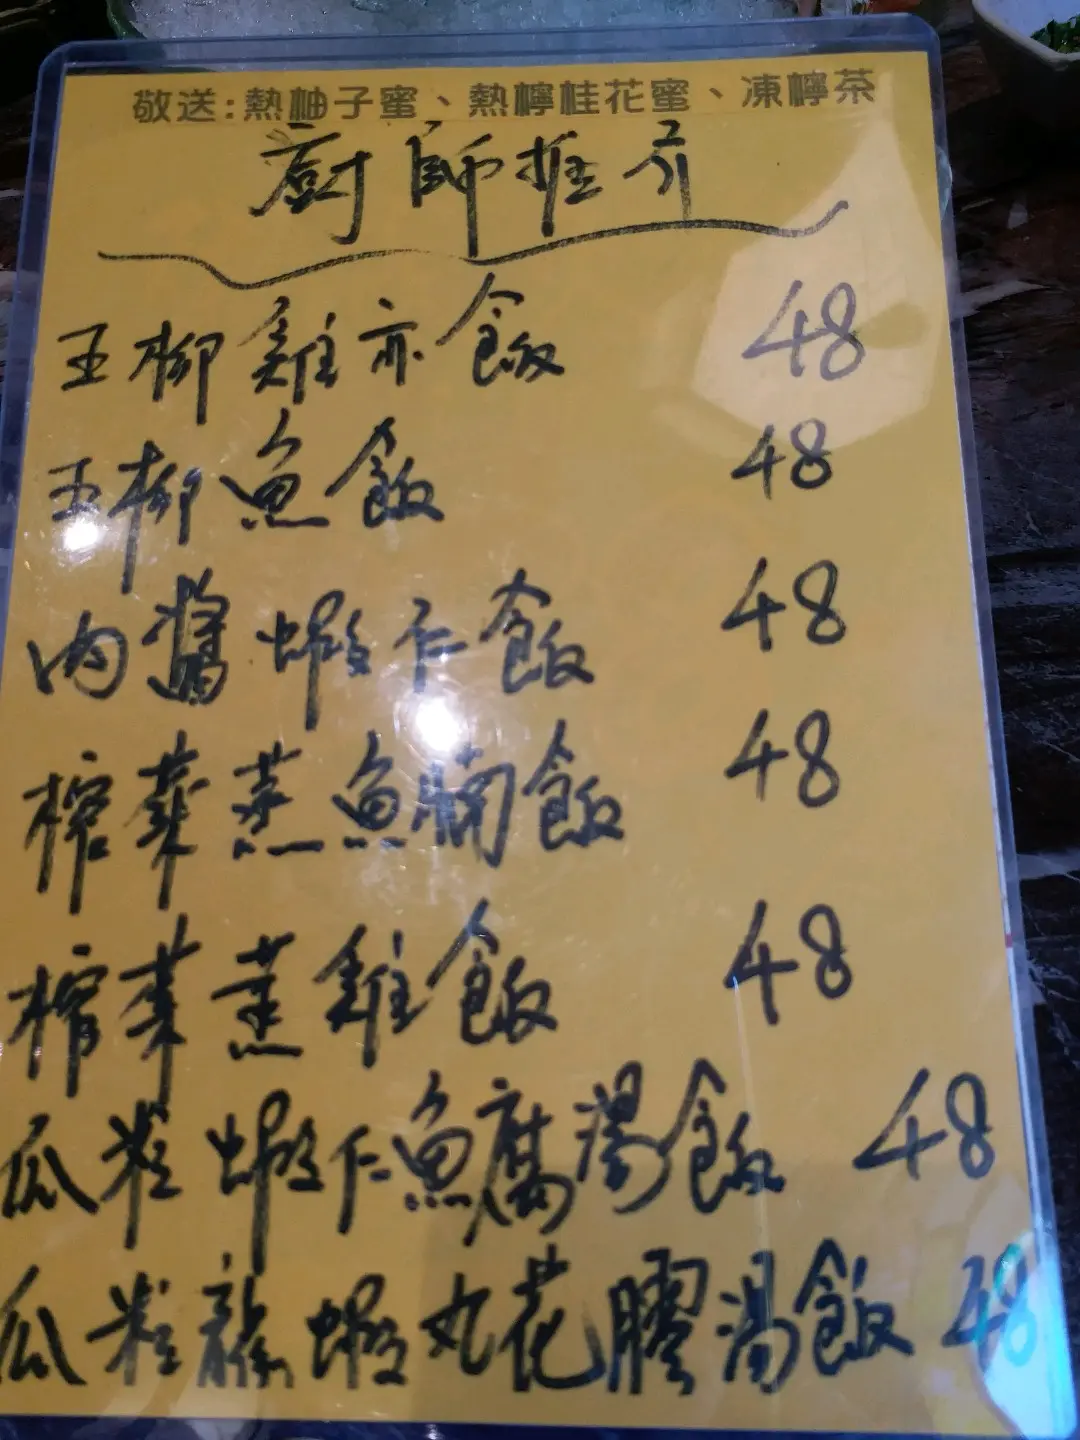 敬送:熱柚子蜜、熱檸桂花蜜、凍檸茶
廚師推介
玉柳雞亦飯 48
玉柳魚飯 48
肉醬蝦仁飯 48
榨菜蒸魚腩飯 48
榨菜蒸雞飯 48
瓜粒蝦仁魚腐湯飯 48
瓜粒龍蝦丸花膠湯飯 48